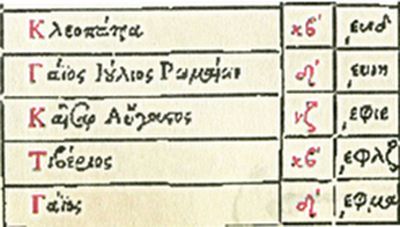 Κλεοπάτρα κβ' ͵ευνδ
Γάϊος Ιούλιος Ρωμαίων δ' ͵ευνη
Καῖσαρ Αὔγουστος νζ ͵εφιε
Τιβέριος κβ' ͵εφλζ
Γάϊος δ' ͵εφμα